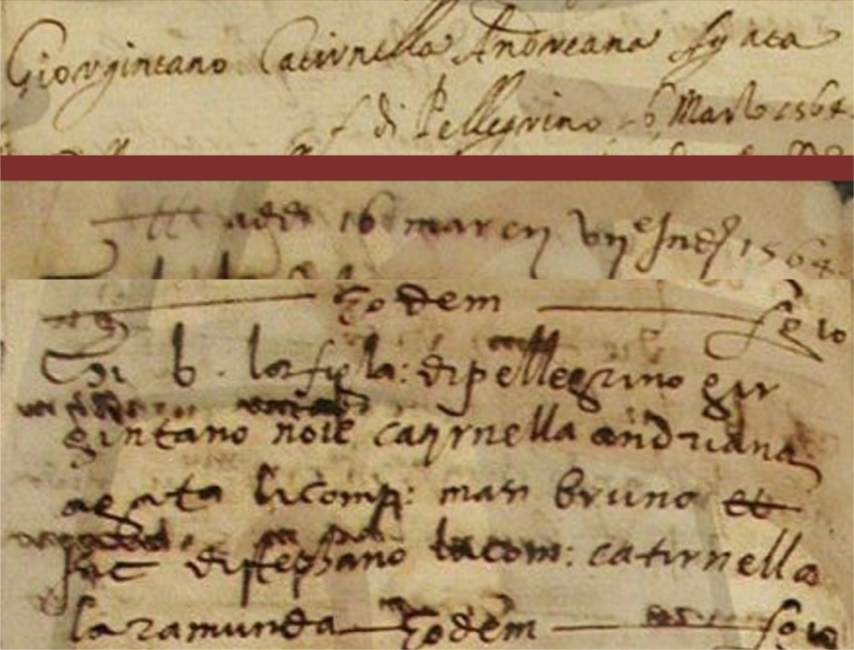 Giorgintano Catirnella Andreana Agata
f di Pellegrino 6 Marzo 1564
adi 16 marcij vij Ind 1564
Eodem
b. la figla: di pellegrino gir
gintano noïe catirnella andriana
agata li comp: masi bruno et
di stephano la com: catirnella
la ramunda Eodem